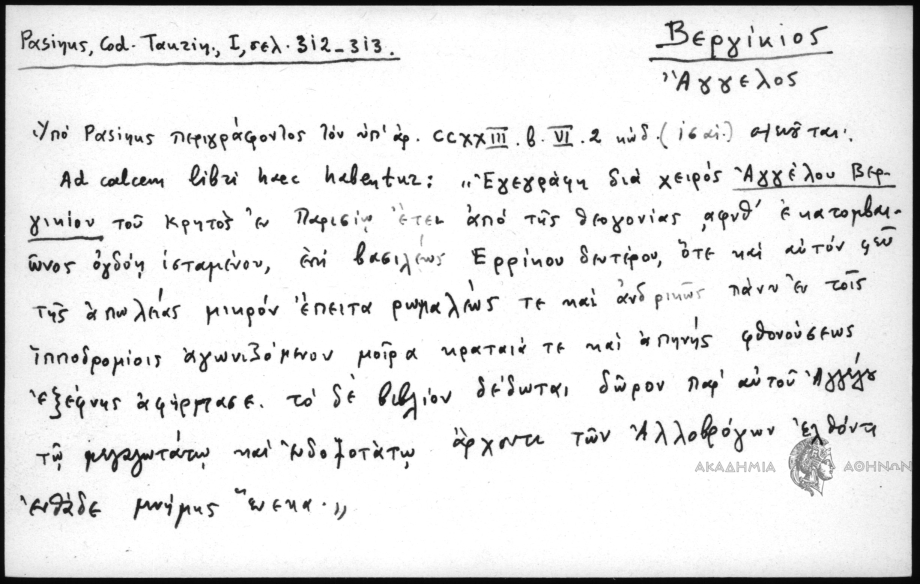 Pasinus, Cod. Taurin., I, σελ. 312-313.
Βεργίκιος
Ἄγγελος
Ὑπό Pasinus περιγράφοντος τόν ὑπ' ἀρ. CCXXIII. b. VI. 2 κώδ. (ἰσαι.)
Ad calcem libri haec habentur: „Ἐγεγράφη διά χειρός Ἀγγέλου Βερ-
γικίου τοῦ Κρητός ἐν Παρισίῳ ἔτει ἀπό τῆς θεογονίας ͵αφνθʹ ἑκατομβαι-
ῶνος ὀγδόῃ ἱσταμένου, ἐπί βασιλέως Ἑρρίκου δευτέρου, ὅτε καί αὐτόν φεῦ
τῆς ἀπωλείας μικρόν ἔπειτα ρωμαλέως τε καί ἀνδρικῶς πάνυ ἐν τοῖς
ἱπποδρομίοις ἀγωνιζόμενον μοῖρα κραταιά τε καί ἀπηνής φθονούσεως
ἐξέφνης ἀφήρπασε. τό δέ βιβλίον δέδωται δῶρον παρ' αὐτοῦ Ἀγγέλου
τῷ μεγαλωτάτῳ καί ἐνδοξοτάτῳ ἄρχοντι τῶν Ἀλλοβρόγων ἐλθόντι
ἐνθάδε μνήμης ἕνεκα.„
ΑΚΑΔΗΜΙΑ ΑΘΗΝΩΝ